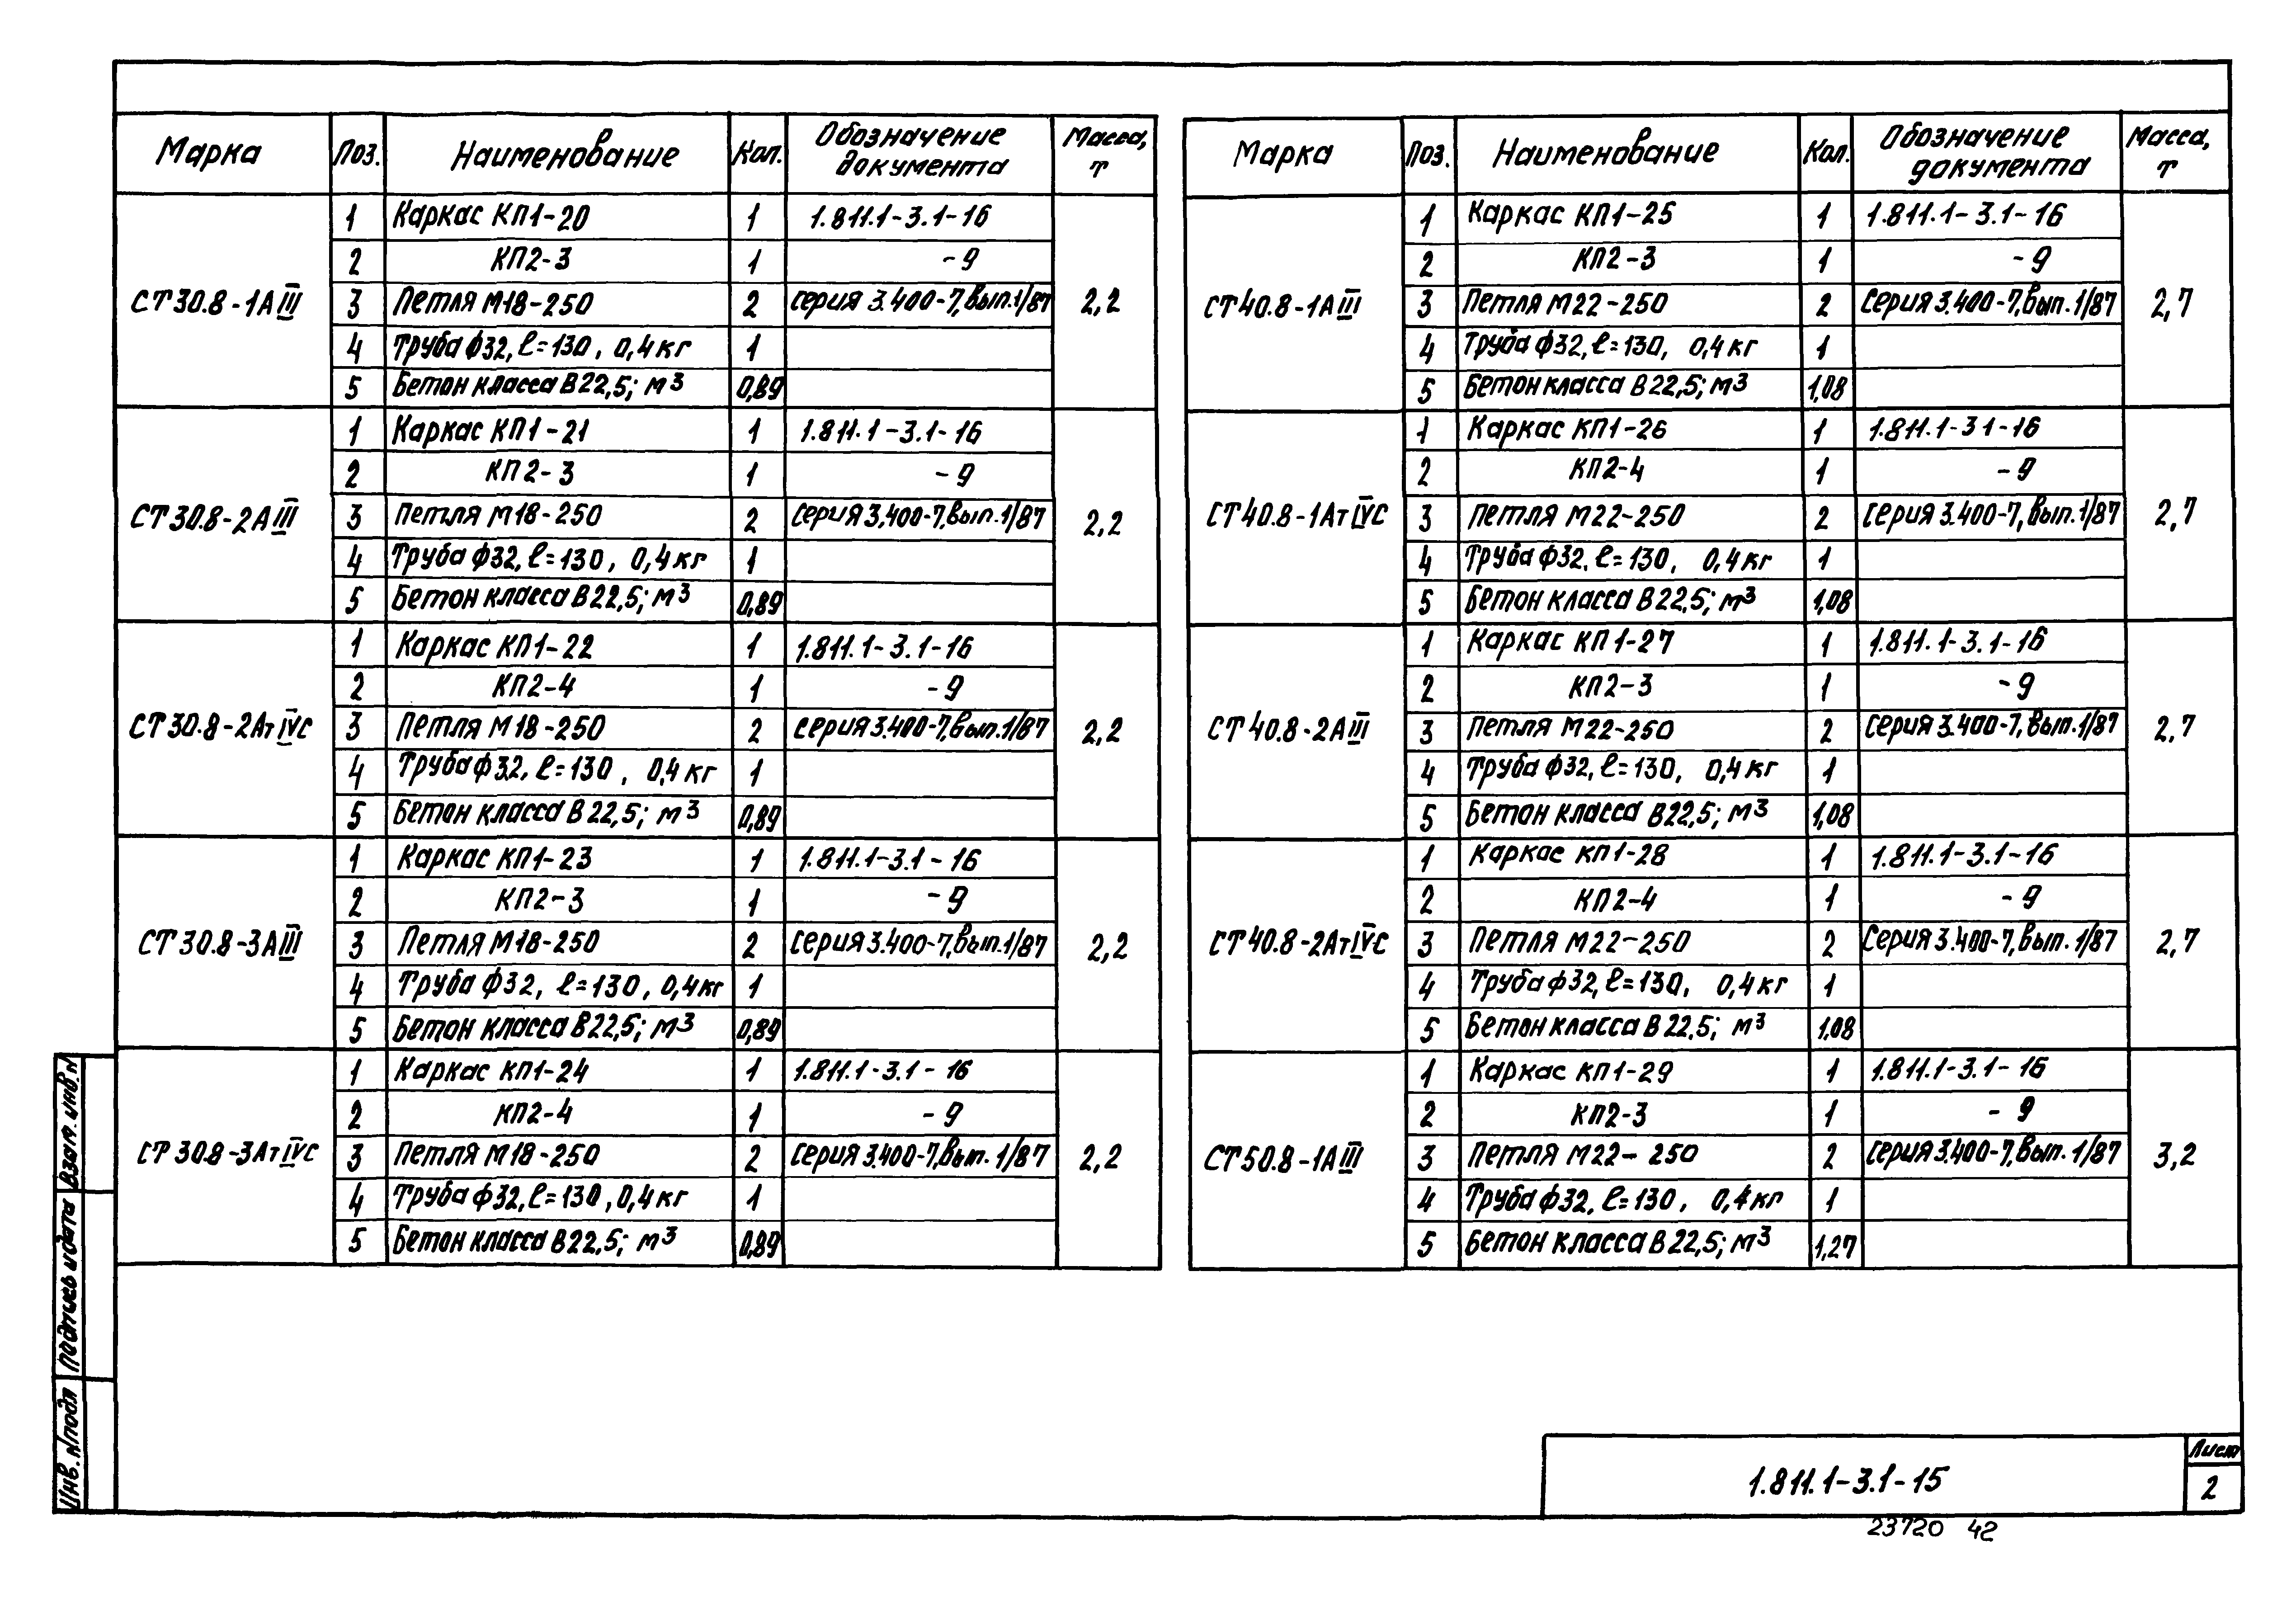 Марка Поз. Наименование Кол. Обозначение документа Масса, т
СТ30.8-1АIII
1 Каркас КП1-20 1 1.811.1-3.1-16
2 КП2-3 1 -9
3 Петля М18-250 2 серия 3.400-7, вып.1/87 2,2
4 Труба ф32, ℓ=130, 0,4кг 1
5 Бетон класса В22,5; м³ 0,89
СТ30.8-2АIII
1 Каркас КП1-21 1 1.811.1-3.1-16
2 КП2-3 1 -9
3 Петля М18-250 2 серия 3.400-7, вып.1/87 2,2
4 Труба ф32, ℓ=130, 0,4кг 1
5 Бетон класса В22,5; м³ 0,89
СТ30.8-2АтIVС
1 Каркас КП1-22 1 1.811.1-3.1-16
2 КП2-4 1 -9
3 Петля М18-250 2 серия 3.400-7, вып.1/87 2,2
4 Труба ф32, ℓ=130, 0,4кг 1
5 Бетон класса В22,5; м³ 0,89
СТ30.8-3АIII
1 Каркас КП1-23 1 1.811.1-3.1-16
2 КП2-3 1 -9
3 Петля М18-250 2 серия 3.400-7, вып.1/87 2,2
4 Труба ф32, ℓ=130, 0,4кг 1
5 Бетон класса В22,5; м³ 0,89
СТ30.8-3АтIVС
1 Каркас КП1-24 1 1.811.1-3.1-16
2 КП2-4 1 -9
3 Петля М18-250 2 серия 3.400-7, вып.1/87 2,2
4 Труба ф32, ℓ=130, 0,4кг 1
5 Бетон класса В22,5; м³ 0,89
Марка Поз. Наименование Кол. Обозначение документа Масса, т
СТ40.8-1АIII
1 Каркас КП1-25 1 1.811.1-3.1-16
2 КП2-3 1 -9
3 Петля М22-250 2 Серия 3.400-7, вып.1/87 2,7
4 Труба ф32, ℓ=130, 0,4кг 1
5 Бетон класса В22,5; м³ 1,08
СТ40.8-1АтIVС
1 Каркас КП1-26 1 1.811.1-3 1-16
2 КП2-4 1 -9
3 Петля М22-250 2 серия 3.400-7, вып.1/87 2,7
4 Труба ф32, ℓ=130, 0,4кг 1
5 Бетон класса В22,5; м³ 1,08
СТ40.8-2АIII
1 Каркас КП1-27 1 1.811.1-3.1-16
2 КП2-3 1 -9
3 Петля М22-250 2 серия 3.400-7, вып.1/87 2,7
4 Труба ф32, ℓ=130, 0,4кг 1
5 Бетон класса В22,5; м³ 1,08
СТ40.8-2АтIVС
1 Каркас КП1-28 1 1.811.1-3.1-16
2 КП2-4 1 -9
3 Петля М22-250 2 Серия 3.400-7, вып.1/87 2,7
4 Труба ф32, ℓ=130, 0,4кг 1
5 Бетон класса В22,5; м³ 1,08
СТ50.8-1АIII
1 Каркас КП1-29 1 1.811.1-3.1-16
2 КП2-3 1 -9
3 Петля М22-250 2 серия 3.400-7, вып.1/87 3,2
4 Труба ф32, ℓ=130, 0,4кг 1
5 Бетон класса В22,5; м³ 1,27
Взам. инв N
Подпись и дата
Инв. N подл
1.811.1-3.1-15
Лист
2
23720 42